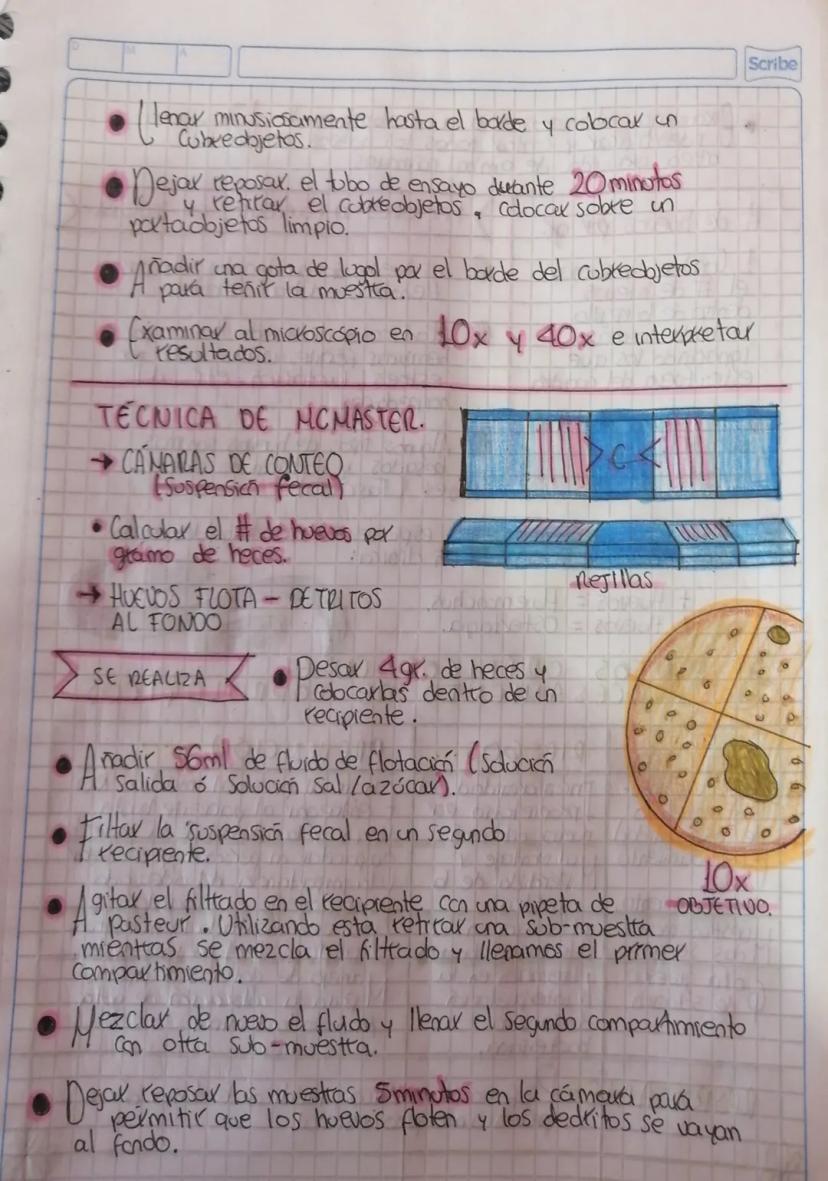 D M A
Scribe
• Llenar minusiosamente hasta el borde y colocar un
cubreobjetos.
• Dejar reposar. el tubo de ensayo durante 20 minutos
y retirar el cubreobjetos, colocar sobre un
portaobjetos limpio.
• Añadir una gota de lugol por el borde del cubreobjetos
para teñir la muestra.
• Examinar al microscopio en 10x y 40x e interpretar
resultados.
TÉCNICA DE MCMASTER.
→ CÁMARAS DE CONTEO
(Suspensión fecal)
> C <
• Calcular el # de huevos por
gramo de heces.
Rejillas
→ HUEVOS FLOTA - DETRITOS
AL FONDO
SE REALIZA
• Pesar 4gr. de heces y
colocarlas dentro de un
recipiente.
• Añadir 56ml de fluido de flotación (solución
salida ó solución sal/azúcar).
• Filtar la suspensión fecal en un segundo
recipiente.
10x
OBJETIVO.
• Agitar el filtrado en el recipiente con una pipeta de
Pasteur. Utilizando esta retirar una sub-muestra
mientras se mezcla el filtrado y llenamos el primer
compartimiento.
• Mezclar de nuevo el fludo y llenar el segundo compartimiento
con otra sub-muestra.
• Dejar reposar las muestras 5minutos en la cámara para
permitir que los huevos floten y los dedritos se vayan
al fondo.